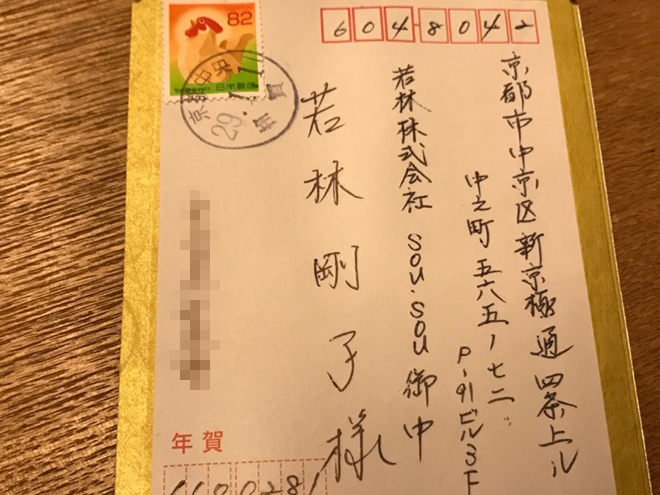 604-8042
京都市中京区新京極通四条上ル
中之町五六五ー七二
P-91ビル3F
若林株式会社 SOU・SOU御中
若林剛子様
82
日本郵便
京都中央
29.1.1
年賀
年賀